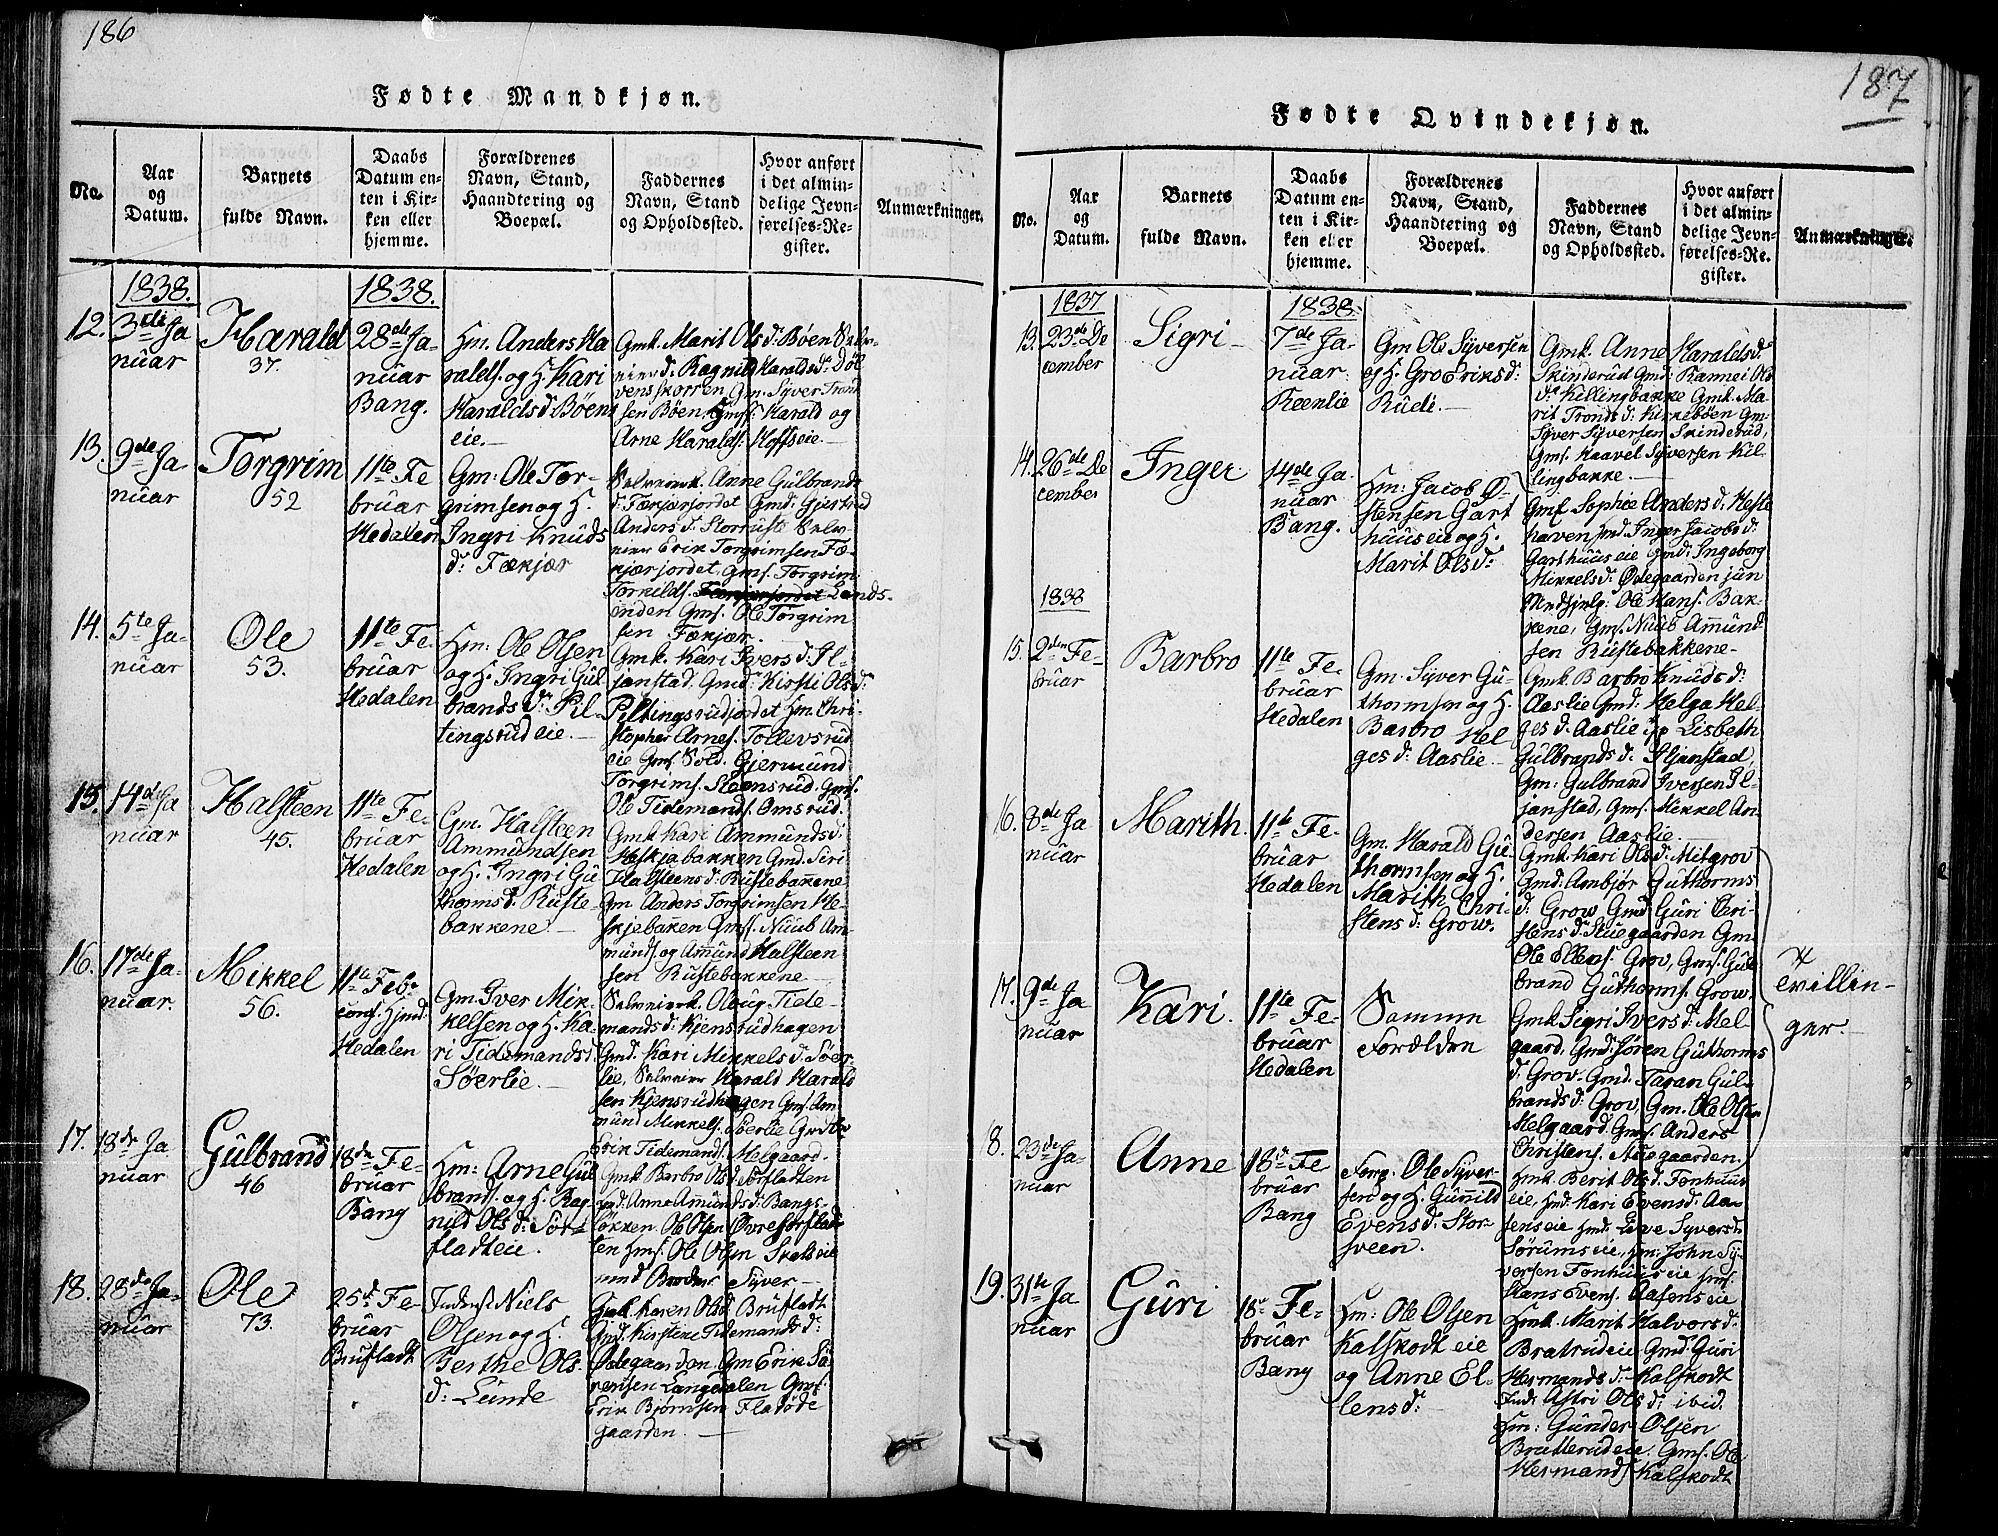 186
Fødte Mandkjøn.
No.
Aar
og
Datum.
Barnets
fulde Navn.
Daabs
Datum en-
ten i Kir-
ken eller
hjemme.
Forældrenes
Navn, Stand,
Haandtering og
Boepæl.
Faddernes
Navn, Stand
og Opholdssted.
Hvor anført
i det almin-
delige Jevn-
førelses-Re-
gister.
Anmærkninger.
1838.
1838.
12.
3die Ja
nuar
Harald
37.
28de Ja-
nuar
Bang.
Hm. Anders Ha
ralds. og H. Kari
Haralds d. Bøens
eie.
Gmk. Marit Ols d. Bøen
Ragnild Haralds d.
Gm. Syver Trond
sen Bøen, Gms. Harald og
Arne Haralds. Hoffseie
13.
9de Ja-
nuar
Torgrim
52
11te Fe
bruar
Hedalen
Gm: Ole Tor-
grimsen og H.
Ingri Knuds
d: Fækjær
Anne Gulbrands
d: Fækjærjordet Gmd: Gjertrud
Anders d: Storruste
Erik Torgrimsen Fæ-
kjærjordet. Gms. Torgrim
Torkilds. Lands-
enden Gms. Ole Torgrim
sen Fækjær.
14.
5te Ja-
nuar
Ole
53.
11te Fe-
bruar
Hedalen
Hm: Ole Olsen
og H. Ingri Gul-
brands d: Pil-
tingsrud eie.
Gmk. Kari Ivers d: Il-
janstad, Gmd: Kirsti Ols d:
Piltingsrudjordet Hm. Chri-
stopher Arnes. Tollevsrud
eie Gms. Sold. Gjermund
Torgrims. Steensrud Gms.
Ole Tidemands. Omsrud
15.
14de Ja
nuar
Halsteen
45.
11te Fe-
bruar
Hedalen
Gm. Halsteen
Ammundsen
og H. Ingri Gu
thorms d. Ruste-
bakkene
Gmk Kari Ammunds d.
Heskjebakken Gmd. Siri
Halsteens d: Rustebakkene
Gm Anders Torgrimsen He-
skjebakken Gms. Nuub Am-
munds. og Amund Halsteen
sen Rustebakkene
16.
17de Ja-
nuar.
Mikkel
56.
11te Febr
conf. Hjmd.
Hedalen
Gm. Iver Mik-
kelsen og H. Ka-
ri Tidemands d
Søerlie.
Oloug Tide-
mands d: Kjensrudhagen
Gmd. Kari Mikkels d: Søer-
lie, Harald Harald
sen Kjensrudhagen Gms. Am
mund Mikkels. Søerlie
Erik Tidemands. Melgaard.
17.
18de Ja
nuar
Gulbrand
46
18de Fe-
bruar
Bang
Hm: Arne Gul
brands. og H. Rag
nild Ols d: Sør-
fladteie.
Gmk Barbro Ols d Sørfladten
Anne Amunds d: Bangs-
Ole Olsen Øvre Sørflad-
ten Hms. Ole Olsen
med Broder Syver
18.
28de Ja-
nuar
Ole
73.
25de Fe-
bruar
Brufladt
Inderst Niels
Olsen og H.
Berthe Ols
d: Lunde
Gmk Karen Ols d Brufladt
Gmd. Kirstine Tidemands d:
Ødegaarden. Gm Erik Sø
rensen Langedalen Gms.
Erik Bjørnsen Fladøde
gaarden.
187
Fødte Qvindekjøn.
No.
Aar
og
Datum.
Barnets
fulde Navn.
Daabs
Datum en-
ten i Kir-
ken eller
hjemme.
Forældrenes
Navn, Stand,
Haandtering og
Boepæl.
Faddernes
Navn, Stand
og Opholdssted.
Hvor anført
i det almin-
delige Jevn-
førelses-Re-
gister.
Anmærkninger.
1837
1838.
13.
23de De
cember
Sigri
7de Ja-
nuar
Reenlie
Gm Ole Syversen
og H. Gro Eriks d:
Rudi.
Gmk. Anne Haralds d:
Skinderud Gmd: Rannei Ols
d: Killingbakke Gmk. Ma-
rit Tronds d: Kirkebøen Gm:
Syver Syversen Skinderud,
Gms. Haavel Syversen Kil-
lingbakke.
14.
26de De
cember
Inger
14de Ja-
nuar
Bang.
Hm: Jacob Ø-
stensen Gart
huuseie og H.
Marit Ols d:
Gmk Sophie Anders d: Heste
haven Hmd. Inger Jacobs d:
Garthuuseie Gmd: Ingeborg
Mikkels d: Ødegaarden jun
Medhjelp: Ole Hans. Bak-
kene, Gms. Nuub Ammund
sen Rustebakkene
1838
15.
2den Fe-
bruar
Barbro
11te Fe-
bruar
Hedalen
Gm. Syver Gu-
thormsen og H.
Barbro Hel-
ges d: Aaslie
Gmk Barbro Knuds d:
Aaslie Gmd: Helga Hel-
ges d: Aaslie Lisbeth
Gulbrands d: Iljanstad,
Gm: Gulbrand Iversen Il-
janstad, Gms. Mikkel An-
dersen Aaslie.
16.
8de Ja
nuar
Marith
11te Fe-
bruar
Hedalen
Gm. Harald Gu-
thormsen og H.
Marith Chri-
stens d: Grow.
Gmk. Kari Ols d: Mitgrov
Gmd: Ambjør Guthorms
d: Grow Gmd: Guri Chri-
stens d: Gm.
Ole Ellens. Grov, Gms. Gul-
brand Guthorms. Grow.
tvillin-
ger.
17.
9de Ja
nuar
Kari.
11te Fe-
bruar
Hedalen
Samme
Forælden
Gmk Sigri Ivers d: Mel-
gaard, Gmd: Jøren Guthorms
d: Grov Gmd. Taran Gul-
brands d: Grov, Gm. Ole Olsen
Melgaard. Gms. Anders
Christens.
18.
23de Ja-
nuar
Anne
18de Fe
bruar
Bang
Ole Syver-
sen og H. Gunild
Evens d: Stor-
sveen.
Hmk Berit Ols d: Fonhuus
eie, Hmd: Kari Evens d: Aa-
senseie Hmd: Live Syvers d:
Sørumseie, Hm: John Sy-
versen Fonhuuseie Hms.
Hans Evens. Aasenseie
19.
31te Ja
nuar
Guri
18de Fe-
bruar
Bang
Hm: Ole Olsen
Kalskodt eie
og Anne El-
lens d:
Hmk. Marit Halvors d:
Bratrudeie Gmd: Guri
Hermands d: Kalskodt
Ind: Astri Ols d: ibid.
Hm: Gunder Olsen
Bratterudeie. Gms. Ole
Hermands. Kalskodt